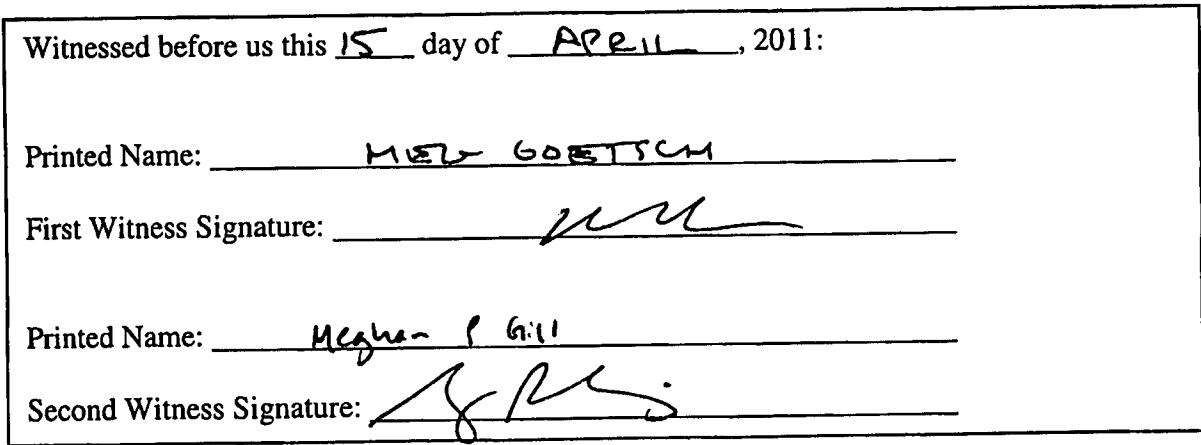 Witnessed before us this 15 day of APRIL, 2011:
Printed Name: MEG GOETSCH
First Witness Signature:
Printed Name: Meghan P Gill
Second Witness Signature: